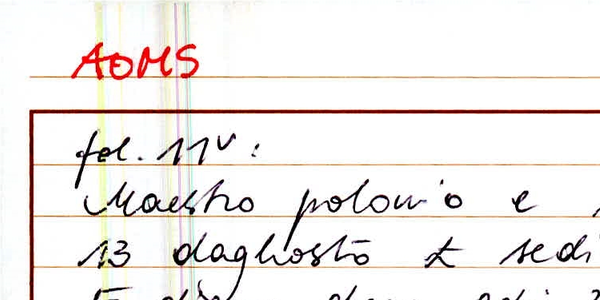 AOMS
fol. 11v:
Maestro polonio e
13 daghosto £ sedi